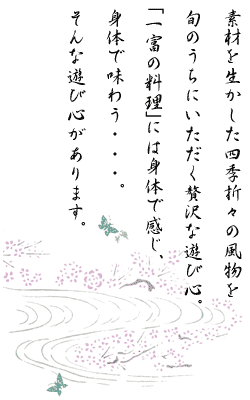 素材を生かした四季折々の風物を
旬のうちにいただく贅沢な遊び心。
「一富の料理」には身体で感じ、
身体で味わう・・・。
そんな遊び心があります。